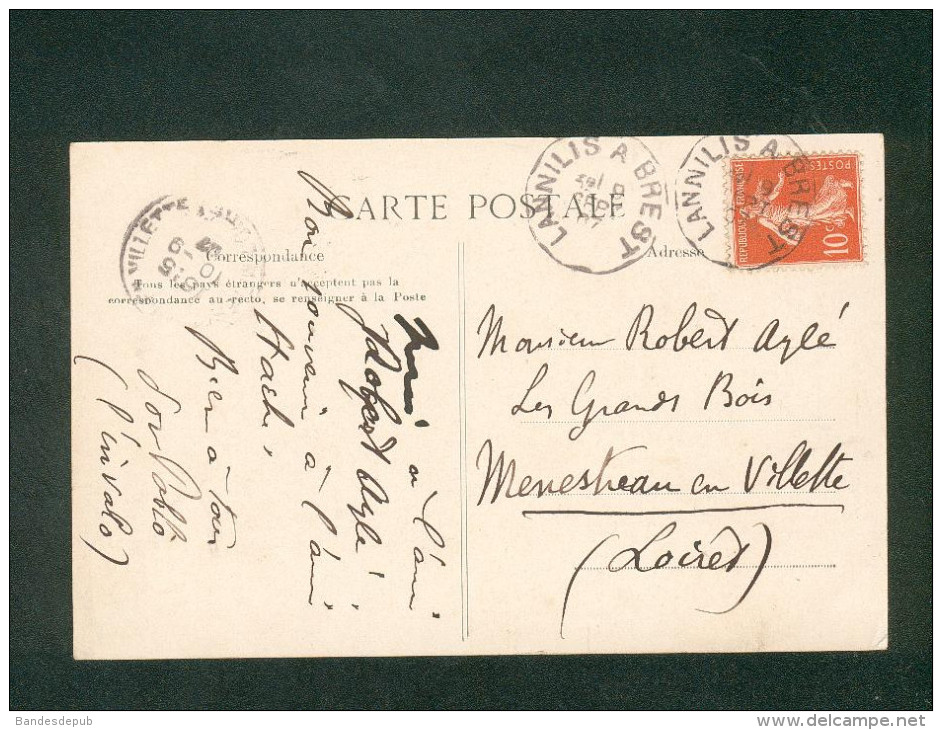 CARTE POSTALE
Correspondance
Adresse
Tous les pays étrangers n'acceptent pas la
correspondance au recto, se renseigner à la Poste
LANNILIS A BREST
LANNILIS A BREST
REPUBLIQUE FRANÇAISE
POSTES
10c
VILLETTE
10-9
Monsieur Robert Aylé
Les Grands Bois
Menestreau en Villette
(Loiret)
à l'ami
Robert Aylé
Bon souvenir à l'ami
Bien à tou
Bandesdepub
www.delcampe.net